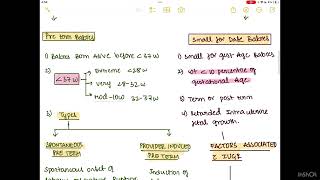 Pre term Babies
1) Babies born alive before <37w
2) <37w
Extreme <28w
very 28-32w
mod-low 32-37w
3) Types
SPONTANEOUS
PRE TERM
PROVIDER INDUCED
PRE TERM
Spontaneous onset of
Induction of
Small for Date Babies
1) Small for gest Age Babies
2) wt < 10 percentile of
gestational Age
3) Term or post term
4) Retarded Intrauterine
fetal growth.
FACTORS ASSOCIATED
IUGR